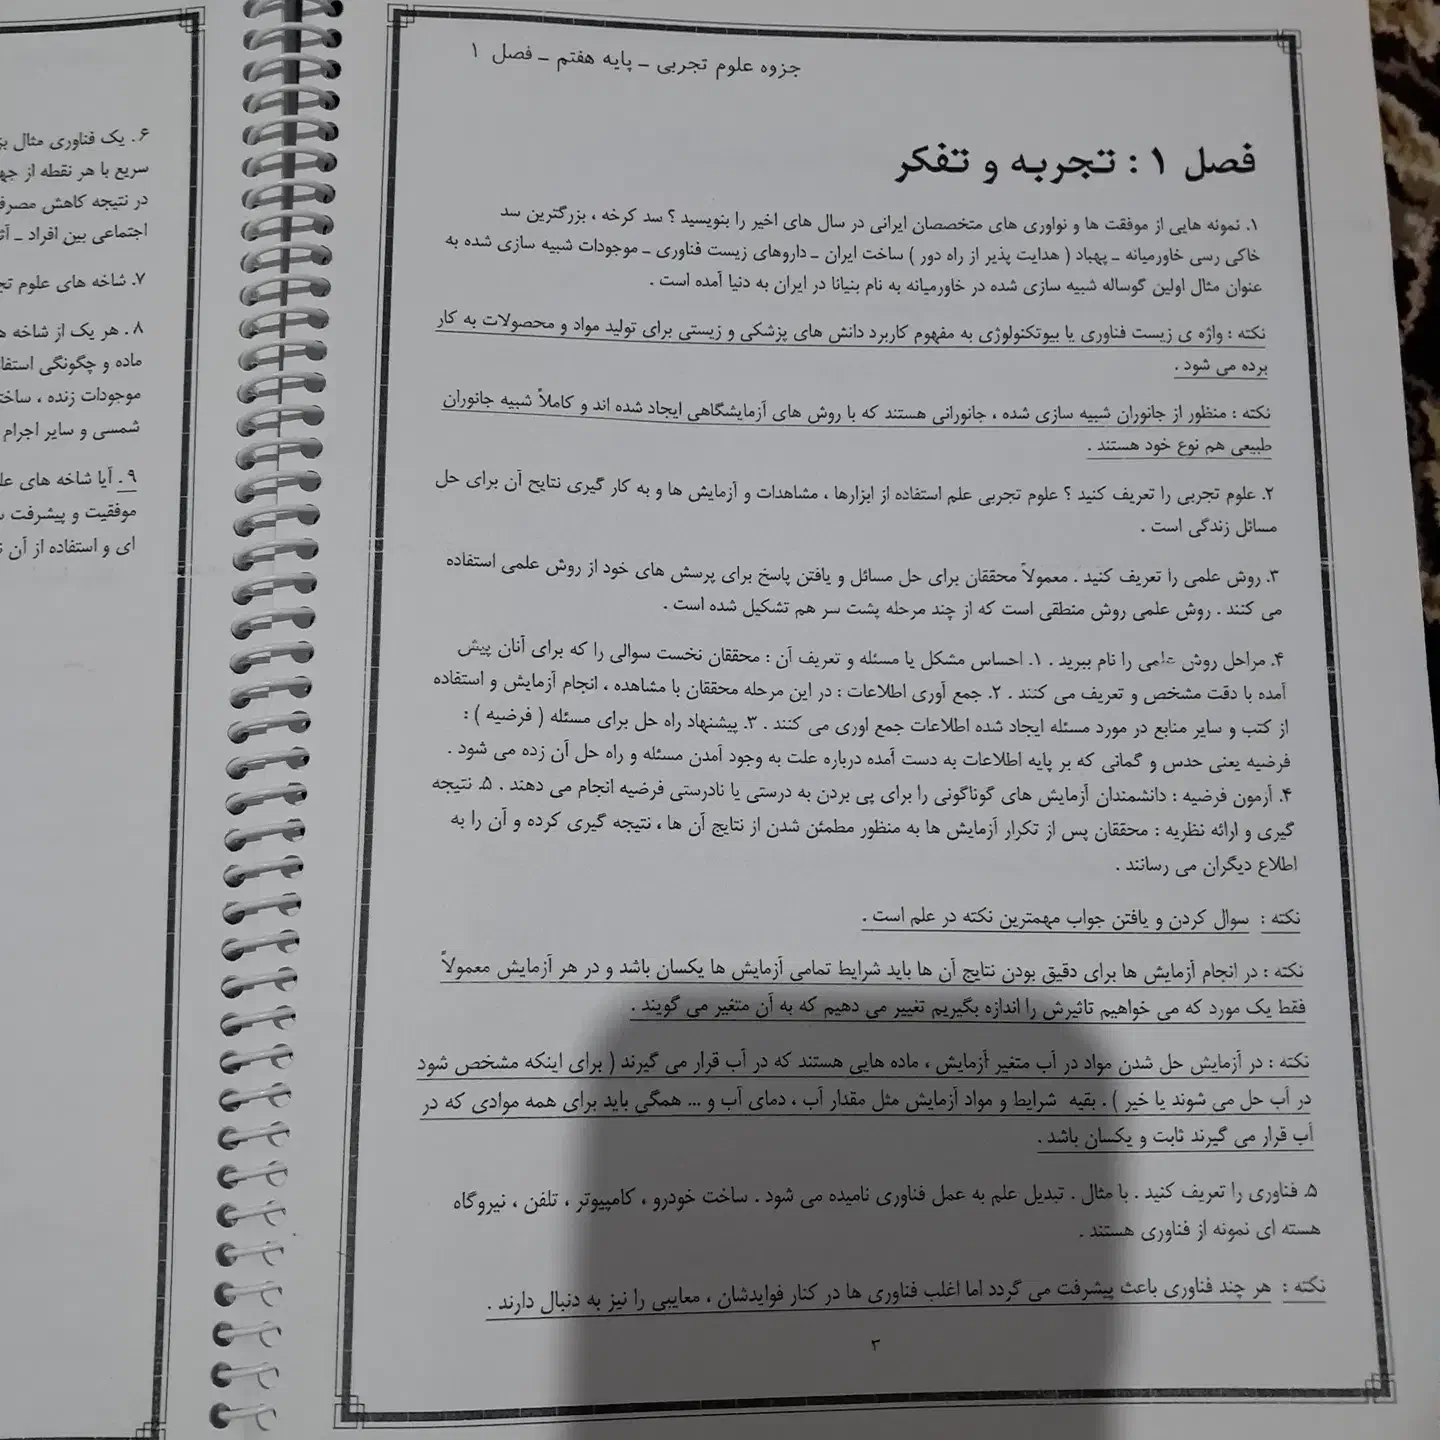 جزوه علوم تجربی ـ پایه هفتم ـ فصل ۱
فصل ۱ : تجربه و تفکر
۱. نمونه هایی از موفقت ها و نواوری های متخصصان ایرانی در سال های اخیر را بنویسید ؟ سد کرخه ، بزرگترین سد
خاکی رسی خاورمیانه ـ پهپاد ( هدایت پذیر از راه دور ) ساخت ایران ـ داروهای زیست فناوری ـ موجودات شبیه سازی شده به
عنوان مثال اولین گوساله شبیه سازی شده در خاورمیانه به نام بنیانا در ایران به دنیا آمده است .
نکته : واژه ی زیست فناوری یا بیوتکنولوژی به مفهوم کاربرد دانش های پزشکی و زیستی برای تولید مواد و محصولات به کار
برده می شود .
نکته : منظور از جانوران شبیه سازی شده ، جانورانی هستند که با روش های آزمایشگاهی ایجاد شده اند و کاملاً شبیه جانوران
طبیعی هم نوع خود هستند .
۲. علوم تجربی را تعریف کنید ؟ علوم تجربی علم استفاده از ابزارها ، مشاهدات و آزمایش ها و به کار گیری نتایج آن برای حل
مسائل زندگی است .
۳. روش علمی را تعریف کنید . معمولاً محققان برای حل مسائل و یافتن پاسخ برای پرسش های خود از روش علمی استفاده
می کنند . روش علمی روش منطقی است که از چند مرحله پشت سر هم تشکیل شده است .
۴. مراحل روش علمی را نام ببرید . ۱. احساس مشکل یا مسئله و تعریف آن : محققان نخست سوالی را که برای آنان پیش
آمده با دقت مشخص و تعریف می کنند . ۲. جمع آوری اطلاعات : در این مرحله محققان با مشاهده ، انجام آزمایش و استفاده
از کتب و سایر منابع در مورد مسئله ایجاد شده اطلاعات جمع اوری می کنند . ۳. پیشنهاد راه حل برای مسئله ( فرضیه ) :
فرضیه یعنی حدس و گمانی که بر پایه اطلاعات به دست آمده درباره علت به وجود آمدن مسئله و راه حل آن زده می شود .
۴. آزمون فرضیه : دانشمندان آزمایش های گوناگونی را برای پی بردن به درستی یا نادرستی فرضیه انجام می دهند . ۵. نتیجه
گیری و ارائه نظریه : محققان پس از تکرار آزمایش ها به منظور مطمئن شدن از نتایج آن ها ، نتیجه گیری کرده و آن را به
اطلاع دیگران می رسانند .
نکته : سوال کردن و یافتن جواب مهمترین نکته در علم است .
نکته : در انجام آزمایش ها برای دقیق بودن نتایج آن ها باید شرایط تمامی آزمایش ها یکسان باشد و در هر آزمایش معمولاً
فقط یک مورد که می خواهیم تاثیرش را اندازه بگیریم تغییر می دهیم که به آن متغیر می گویند .
نکته : در آزمایش حل شدن مواد در آب متغیر آزمایش ، ماده هایی هستند که در آب قرار می گیرند ( برای اینکه مشخص شود
در آب حل می شوند یا خیر ) . بقیه شرایط و مواد آزمایش مثل مقدار آب ، دمای آب و ... همگی باید برای همه موادی که در
آب قرار می گیرند ثابت و یکسان باشد .
۵. فناوری را تعریف کنید . با مثال . تبدیل علم به عمل فناوری نامیده می شود . ساخت خودرو ، کامپیوتر ، تلفن ، نیروگاه
هسته ای نمونه از فناوری هستند .
نکته : هر چند فناوری باعث پیشرفت می گردد اما اغلب فناوری ها در کنار فوایدشان ، معایبی را نیز به دنبال دارند .
۳
۶. یک فناوری مثال
سریع با هر نقطه از
در نتیجه کاهش
اجتماعی بین افراد ـ
۷. شاخه های علوم
۸. هر یک از شاخه
ماده و چگونگی
موجودات زنده ،
شمسی و سایر اجرام
۹. آیا شاخه های
موفقیت و پیشرفت
ای و استفاده از آن